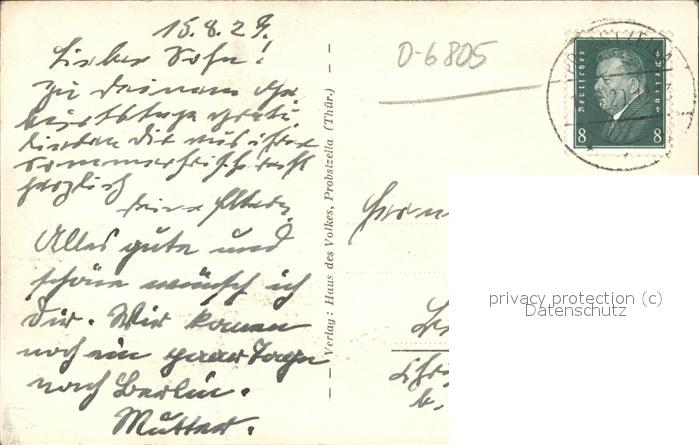 15.8.29.
Lieber Sohn!
Zu Deinem Ge-
burtstage gratu-
lieren Dir aus ihrer
Sommerfrische recht
herzlich
Deine Eltern.
Alles gute und
schöne wünsch ich
Dir. Wir kommen
noch ein paar Tage
nach Berlin.
Mutter.
Verlag: Haus des Volkes, Probstzella (Thür.)
D-6805
Deutsches Reich
8 8
Herrn
privacy protection (c)
Datenschutz